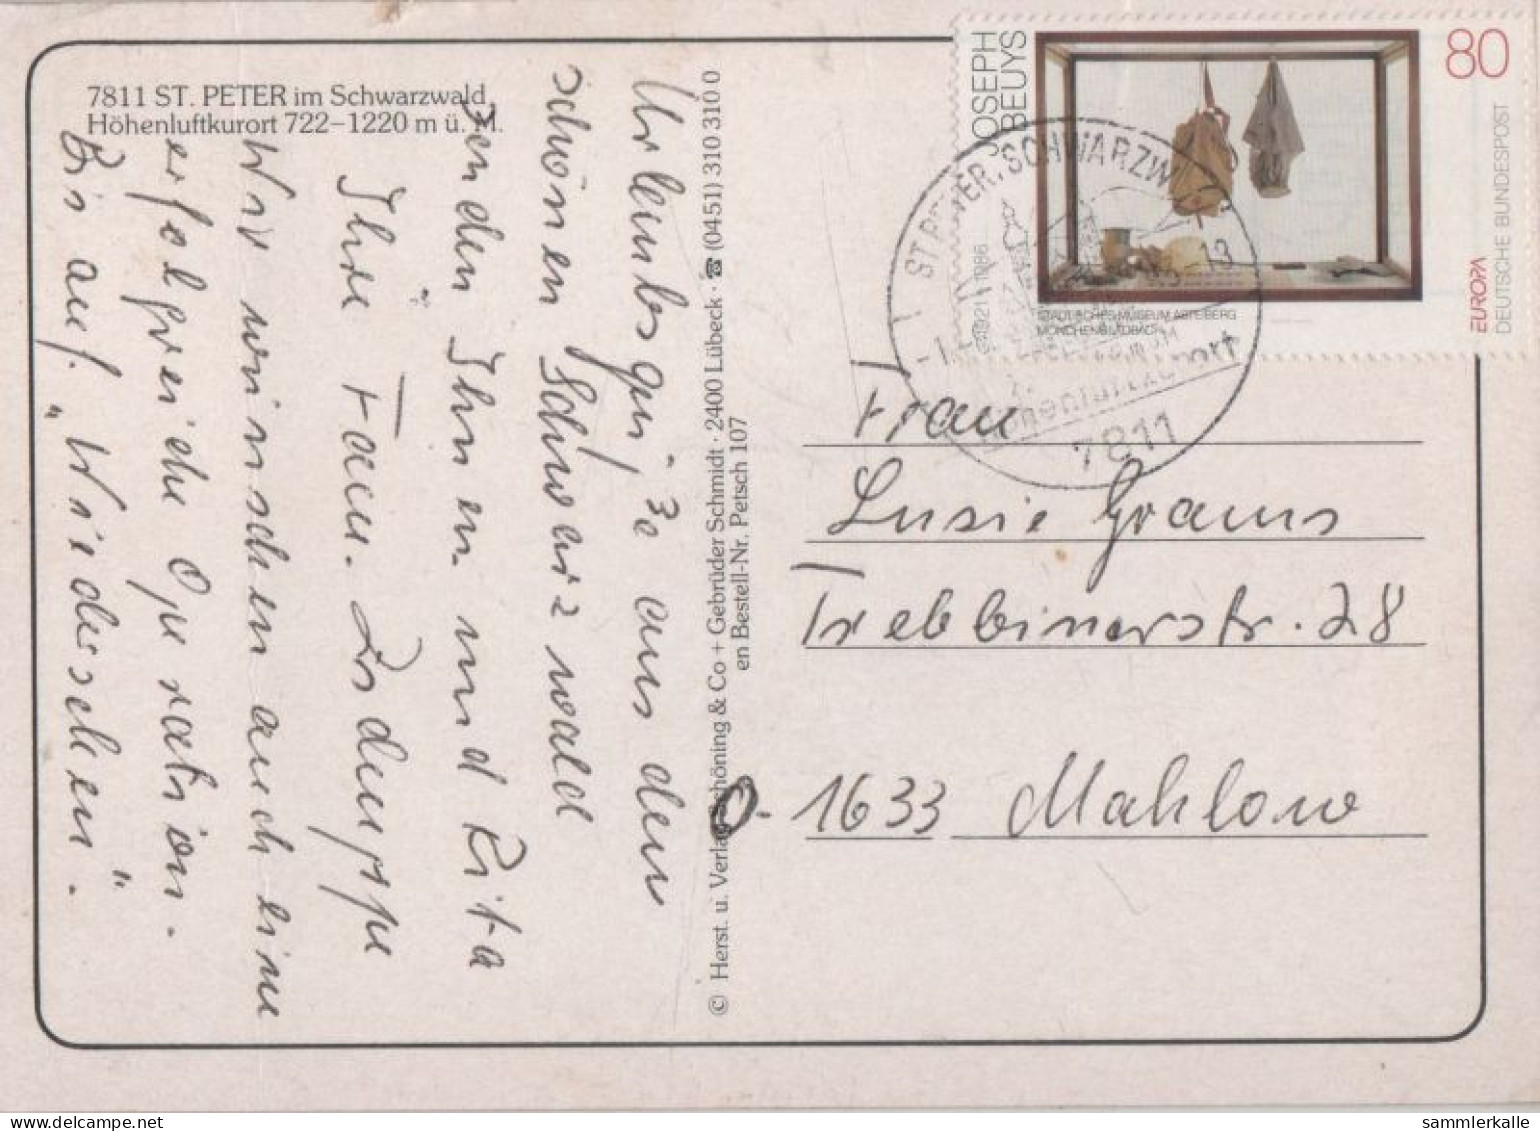 7811 ST. PETER im Schwarzwald
Höhenluftkurort 722–1220 m ü. M.
Urlaubsgrüße aus dem
schönen Schwarzwald
senden Ihnen und Rita
Ihre Fam.
Wir wünschen auch eine
erfolgreiche Operation.
Bis auf "Wiedersehen".
© Herst. u. Verlag Schöning & Co + Gebrüder Schmidt · 2400 Lübeck · ☎ (0451) 310 310 0
en Bestell-Nr. Petsch 107
JOSEPH
BEUYS
80
EUROPA
DEUTSCHE BUNDESPOST
STÄDTISCHES MUSEUM ABTEIBERG
MÖNCHENGLADBACH
1921–1986
ST. PETER, SCHWARZW
Höhenluftkurort
7811
Frau
Lusie Grams
Trebbinerstr. 28
O-1633 Mahlow
sammlerkalle